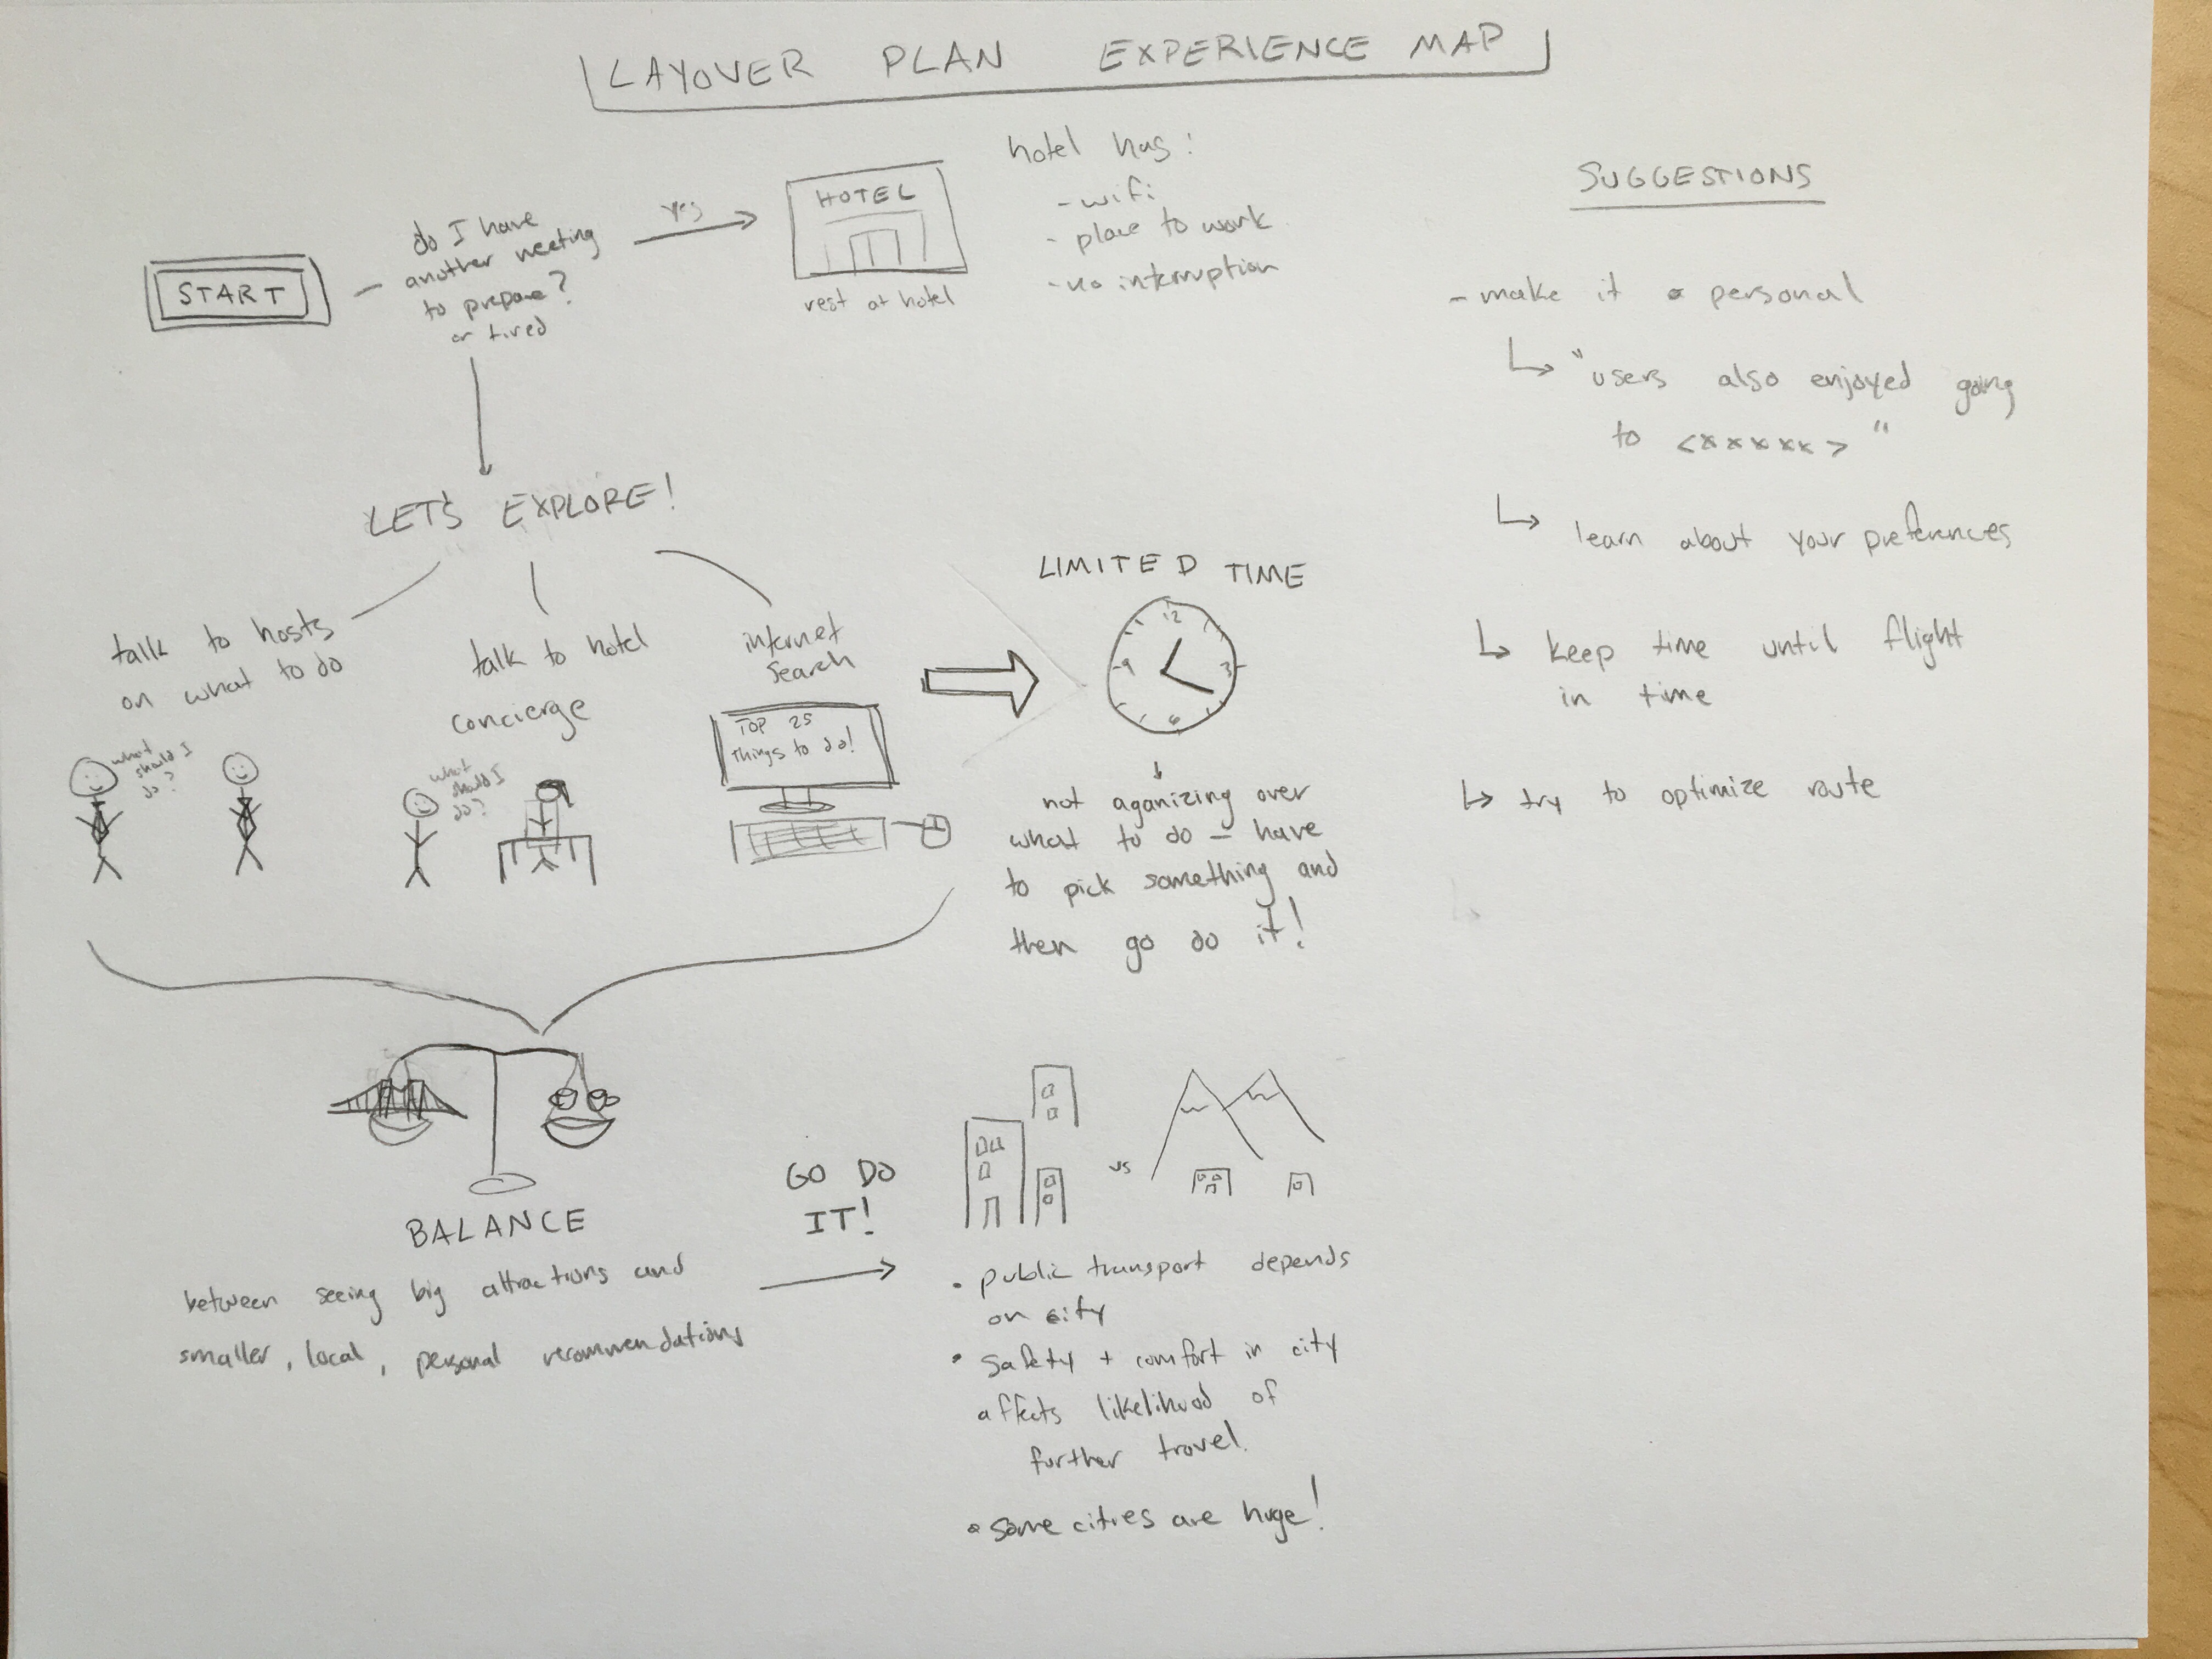 LAYOVER PLAN EXPERIENCE MAP
START
- do I have
another meeting
to prepare?
or tired
YES
HOTEL
rest at hotel
hotel has:
- wifi
- place to work
- no interruption
LETS EXPLORE!
talk to hosts
on what to do
what
should I
do?
talk to hotel
concierge
what
should I
do?
internet
search
TOP 25
things to do!
LIMITED TIME
12
3
6
9
not agonizing over
what to do – have
to pick something and
then go do it!
BALANCE
between seeing big attractions and
smaller, local, personal recommendations
GO DO
IT!
vs
• public transport depends
on city
• safety + comfort in city
affects likelihood of
further travel
• some cities are huge!
SUGGESTIONS
- make it a personal
↳ "users also enjoyed going
to <xxxxx>"
↳ learn about your preferences
↳ keep time until flight
in time
↳ try to optimize route